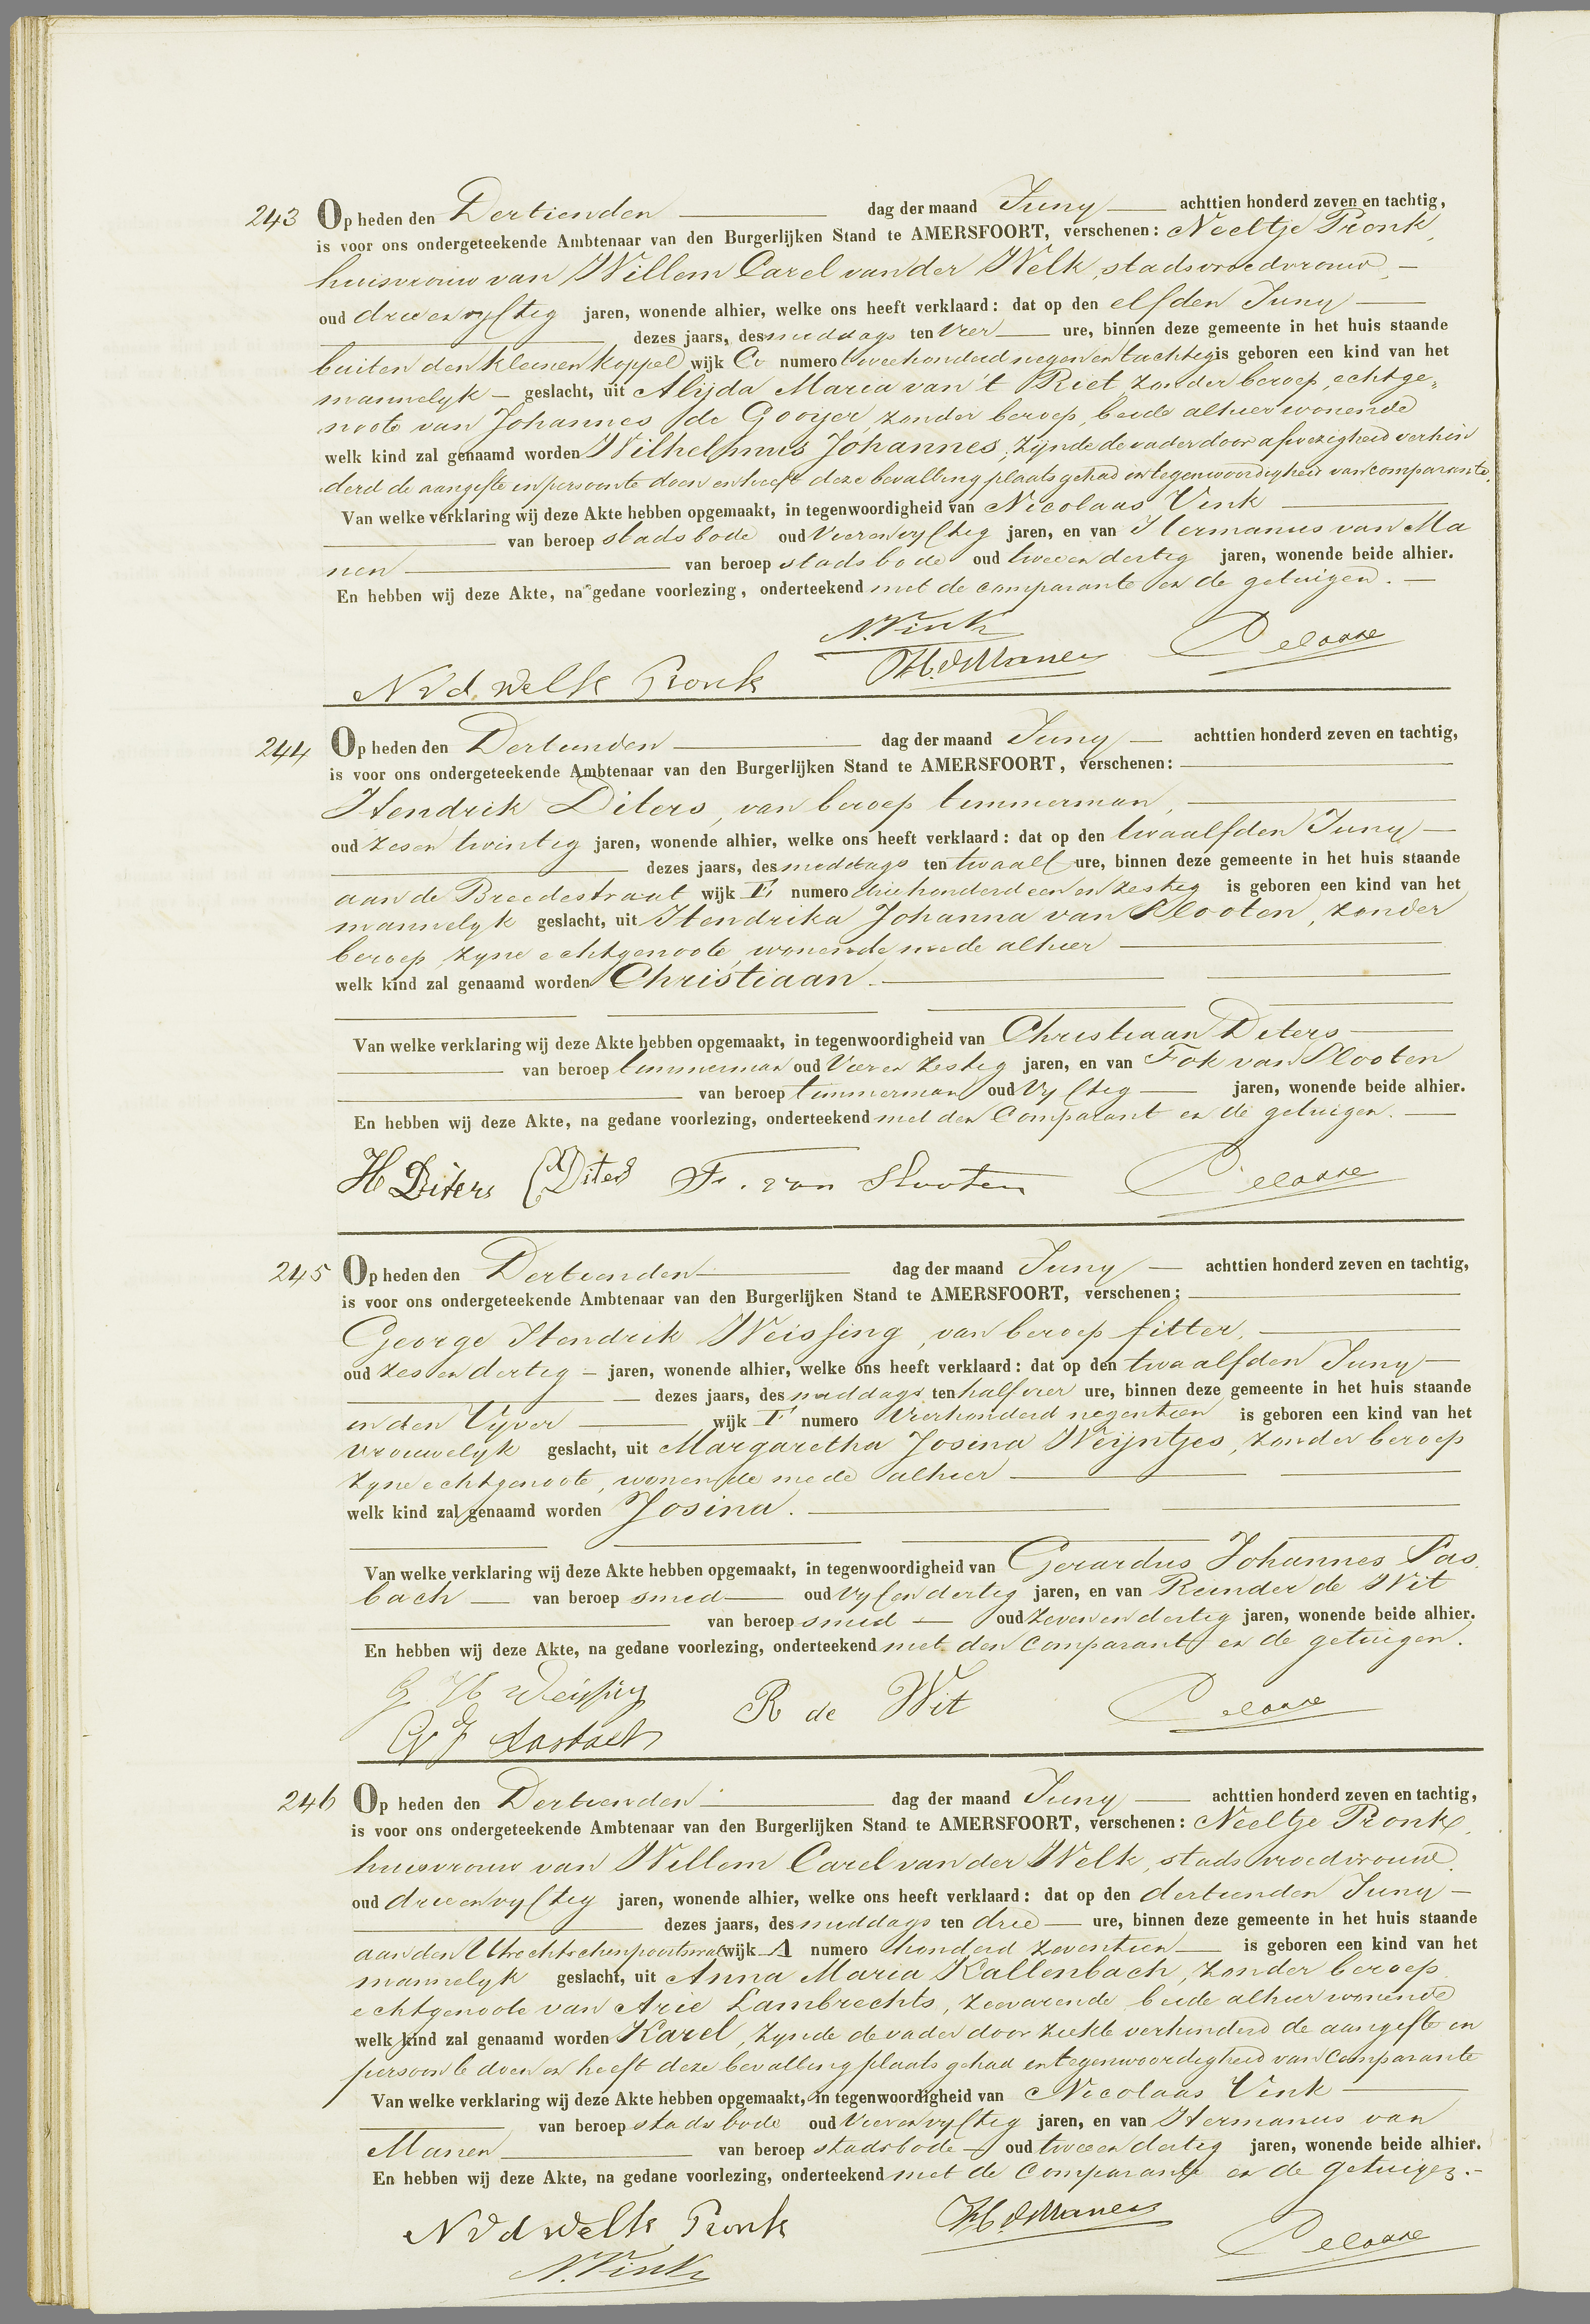 243 Op heden den Dertienden dag der maand Juny achttien honderd zeven en tachtig,
is voor ons ondergeteekende Ambtenaar van den Burgerlijken Stand te AMERSFOORT, verschenen: Neeltje Pronk,
huisvrouw van Willem Carel van der Welk, stadsvroedvrouw, —
oud drie en vyftig jaren, wonende alhier, welke ons heeft verklaard: dat op den elfden Juny —
dezes jaars, des middags ten vier ure, binnen deze gemeente in het huis staande
buiten den kleinen koppel wijk numero tweehonderd negen en tachtig is geboren een kind van het
mannelyk — geslacht, uit Alijda Maria van 't Riet zonder beroep, echtge„
noote van Johannes de Gooijer, zonder beroep, beide alhier wonende
welk kind zal genaamd worden Wilhelmus Johannes, zijnde de vader door afwezigheid verhin
derd de aangifte in persoon te doen en heeft deze bevalling plaats gehad in tegenwoordigheid van comparante.
Van welke verklaring wij deze Akte hebben opgemaakt, in tegenwoordigheid van Nicolaas Vink
van beroep stadsbode oud vier en vyftig jaren, en van Hermanus van Ma
nen van beroep stadsbode oud twee en dertig jaren, wonende beide alhier.
En hebben wij deze Akte, na gedane voorlezing, onderteekend met de comparante en de getuigen. —
N. Vink
N v d. Welk Pronk H. v Manen
244 Op heden den Dertienden dag der maand Juny — achttien honderd zeven en tachtig,
is voor ons ondergeteekende Ambtenaar van den Burgerlijken Stand te AMERSFOORT, verschenen:
Hendrik Diters, van beroep timmerman,
oud zes en twintig jaren, wonende alhier, welke ons heeft verklaard: dat op den twaalfden Juny —
dezes jaars, des middags ten twaalf ure, binnen deze gemeente in het huis staande
aan de Breedestraat wijk E numero driehonderd een en zestig is geboren een kind van het
mannelyk geslacht, uit Hendrika Johanna van Slooten, zonder
beroep, zyne echtgenoote, wonende mede alhier
welk kind zal genaamd worden Christiaan.
Van welke verklaring wij deze Akte hebben opgemaakt, in tegenwoordigheid van Christiaan Diters
van beroep timmerman oud vier en zestig jaren, en van Fok van Slooten
van beroep timmerman oud vyftig jaren, wonende beide alhier.
En hebben wij deze Akte, na gedane voorlezing, onderteekend met den Comparant en de getuigen. —
H Diters C Diters F. van Slooten
245 Op heden den Dertienden dag der maand Juny — achttien honderd zeven en tachtig,
is voor ons ondergeteekende Ambtenaar van den Burgerlijken Stand te AMERSFOORT, verschenen:
George Hendrik Weissing, van beroep fitter,
oud zes en dertig — jaren, wonende alhier, welke ons heeft verklaard: dat op den twaalfden Juny —
— dezes jaars, des middags ten half vier ure, binnen deze gemeente in het huis staande
in den Vyver wijk F numero vierhonderd negentien is geboren een kind van het
vrouwelyk geslacht, uit Margaretha Josina Weijntjes, zonder beroep
zyne echtgenoote, wonende mede alhier
welk kind zal genaamd worden Josina.
Van welke verklaring wij deze Akte hebben opgemaakt, in tegenwoordigheid van Gerardus Johannes
bach — van beroep smid oud vyf en dertig jaren, en van Reinder de Wit
van beroep smid — oud zeven en dertig jaren, wonende beide alhier.
En hebben wij deze Akte, na gedane voorlezing, onderteekend met den Comparant en de getuigen.
G H Weissing R de Wit
G J
246 Op heden den Dertienden dag der maand Juny achttien honderd zeven en tachtig,
is voor ons ondergeteekende Ambtenaar van den Burgerlijken Stand te AMERSFOORT, verschenen: Neeltje Pronk,
huisvrouw van Willem Carel van der Welk, stadsvroedvrouw,
oud drie en vyftig jaren, wonende alhier, welke ons heeft verklaard: dat op den dertienden Juny —
dezes jaars, des middags ten drie ure, binnen deze gemeente in het huis staande
aan den Utrechtschenpoortswal wijk A numero honderd zeventien is geboren een kind van het
mannelyk geslacht, uit Anna Maria Kallenbach, zonder beroep
echtgenoote van Arie Lambrechts, zeevarende beide alhier wonende
welk kind zal genaamd worden Karel, zynde de vader door ziekte verhinderd de aangifte in
persoon te doen en heeft deze bevalling plaats gehad in tegenwoordigheid van Comparante
Van welke verklaring wij deze Akte hebben opgemaakt, in tegenwoordigheid van Nicolaas Vink
van beroep stadsbode oud vier en vyftig jaren, en van Hermanus van
Manen van beroep stadsbode — oud twee en dertig jaren, wonende beide alhier.
En hebben wij deze Akte, na gedane voorlezing, onderteekend met de Comparante en de getuigen. —
N v d Welk Pronk H. v Manen
N. Vink